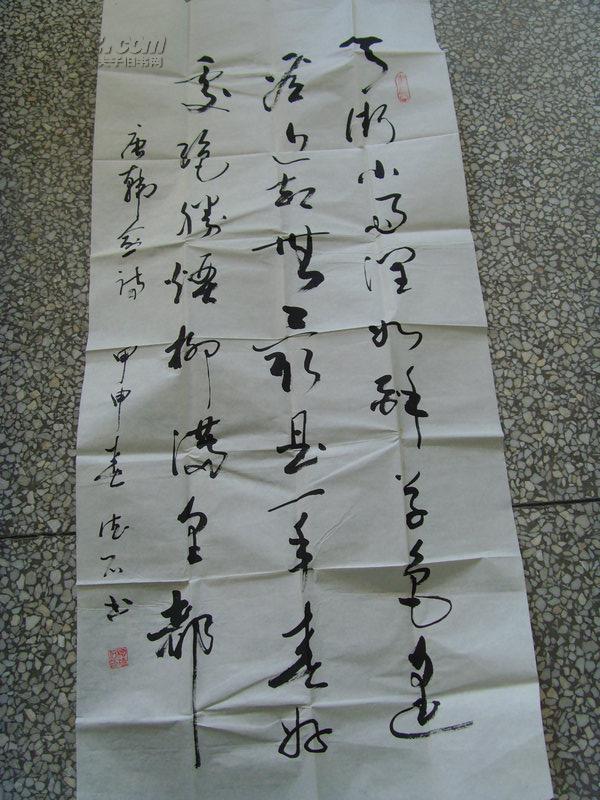 天街小雨润如酥草色遥
看近却無最是一年春好
處绝勝煙柳滿皇都
唐韩愈诗 甲申春 石书
.com
夫子旧书网